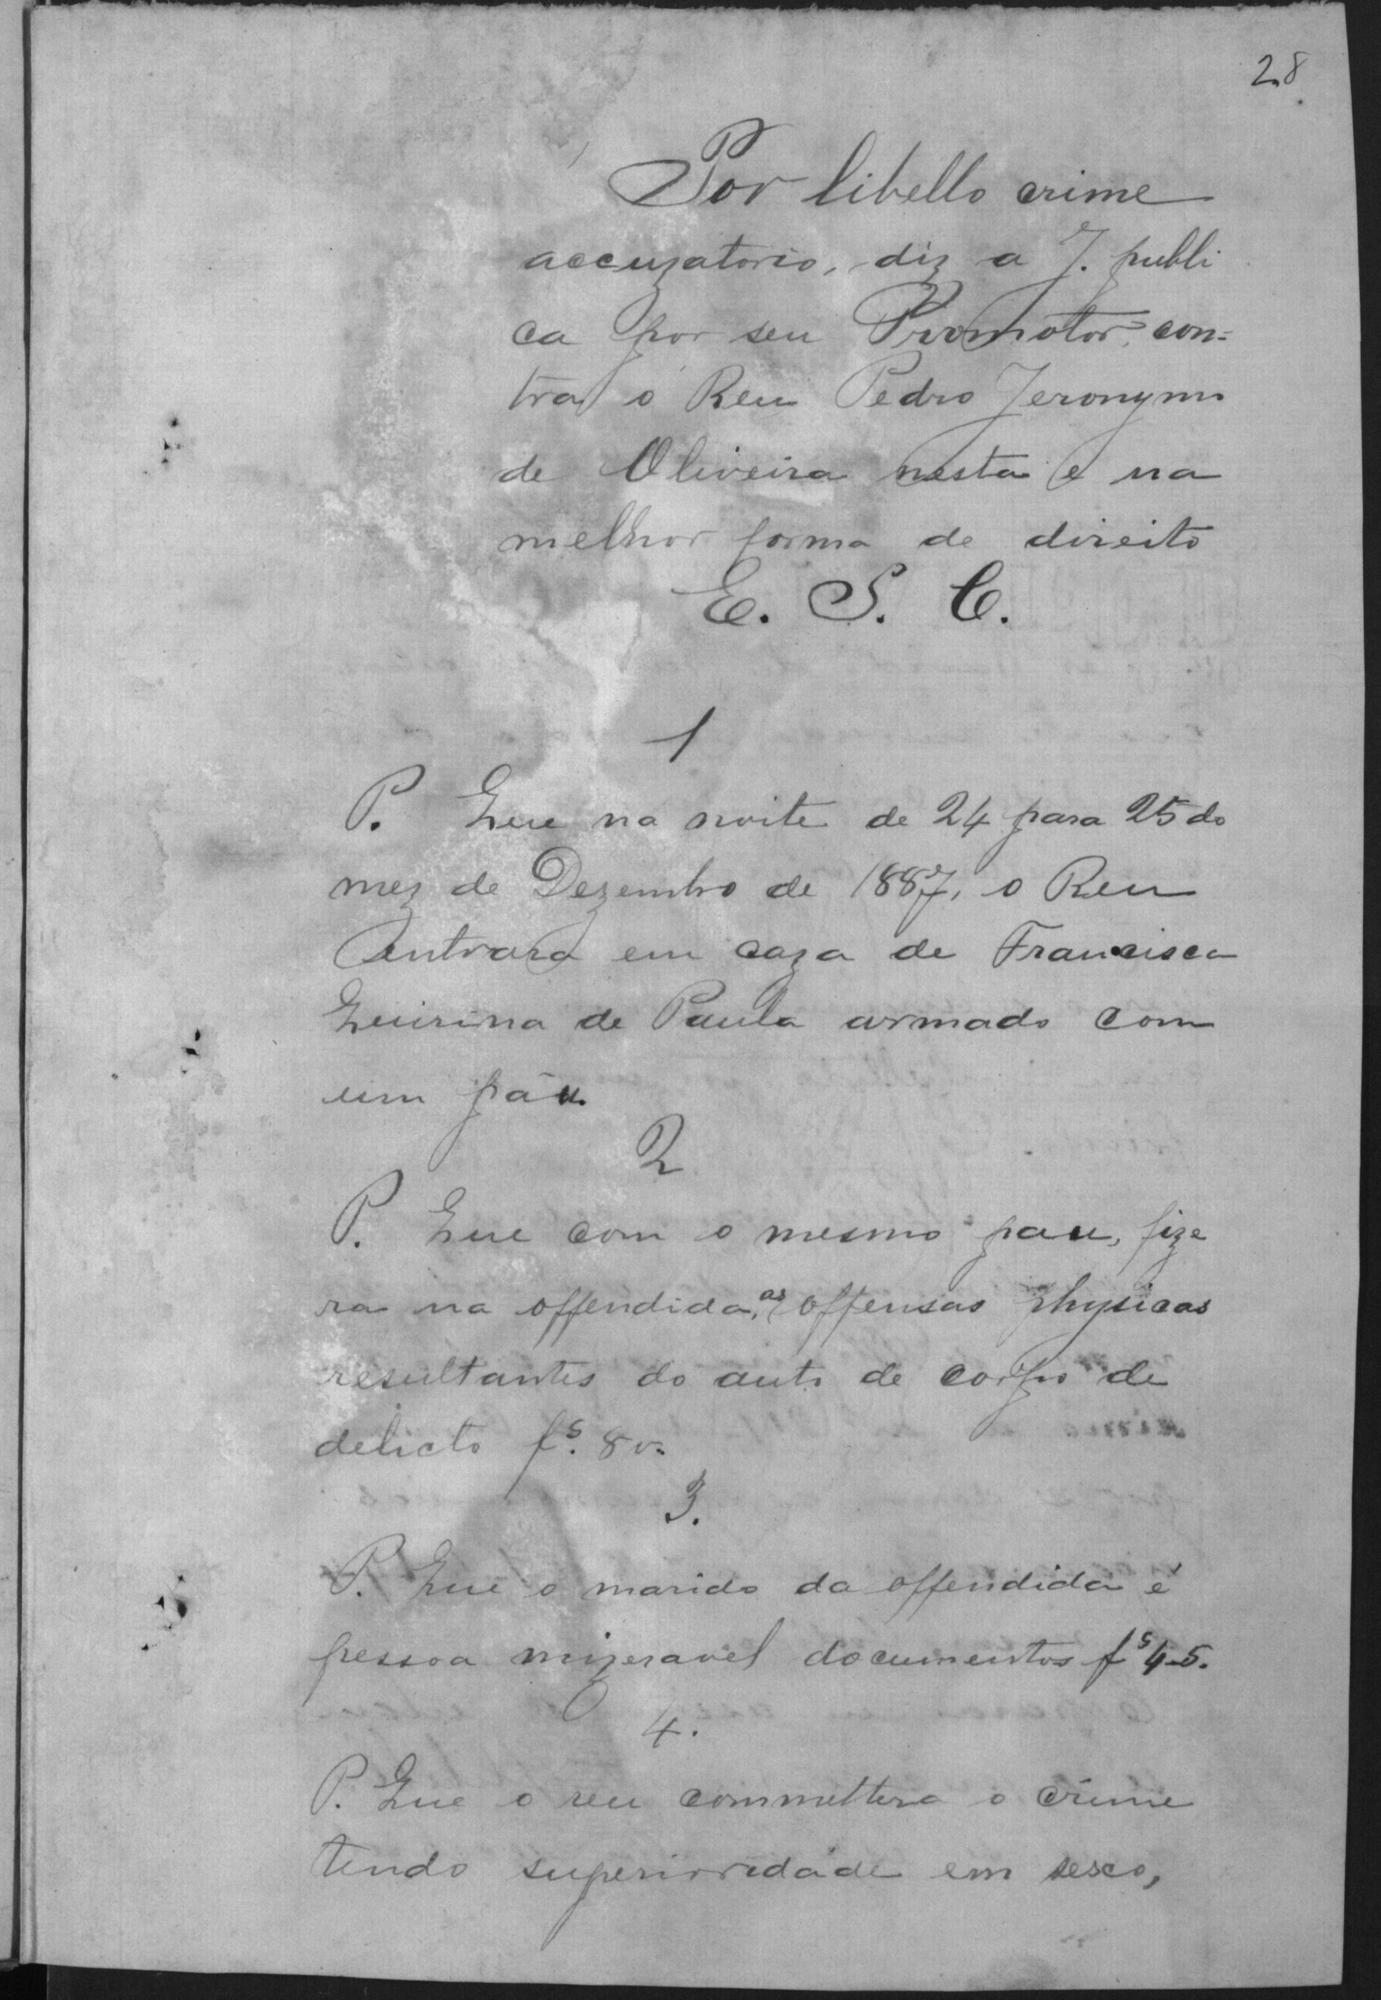 28
Por libello crime
accuzatorio, diz a J. publi
ca por seu Promotor, con=
tra o Reu Pedro Jeronymo
de Oliveira nesta e na
melhor forma de direito
E. S. C.
1
P. Que na noite de 24 para 25 do
mez de Dezembro de 1887, o Reu
entrara em caza de Francisca
Quirina de Paula armado com
um páu.
2
P. Que com o mesmo pau, fize
ra na offendida, as offensas physicas
resultantes do auto de corpo de
delicto fs. 8 v.
3.
P. Que o marido da offendida é
pessoa mizeravel documentos fs 4-5.
4.
P. Que o reu commettera o crime
tendo superioridade em sexo,